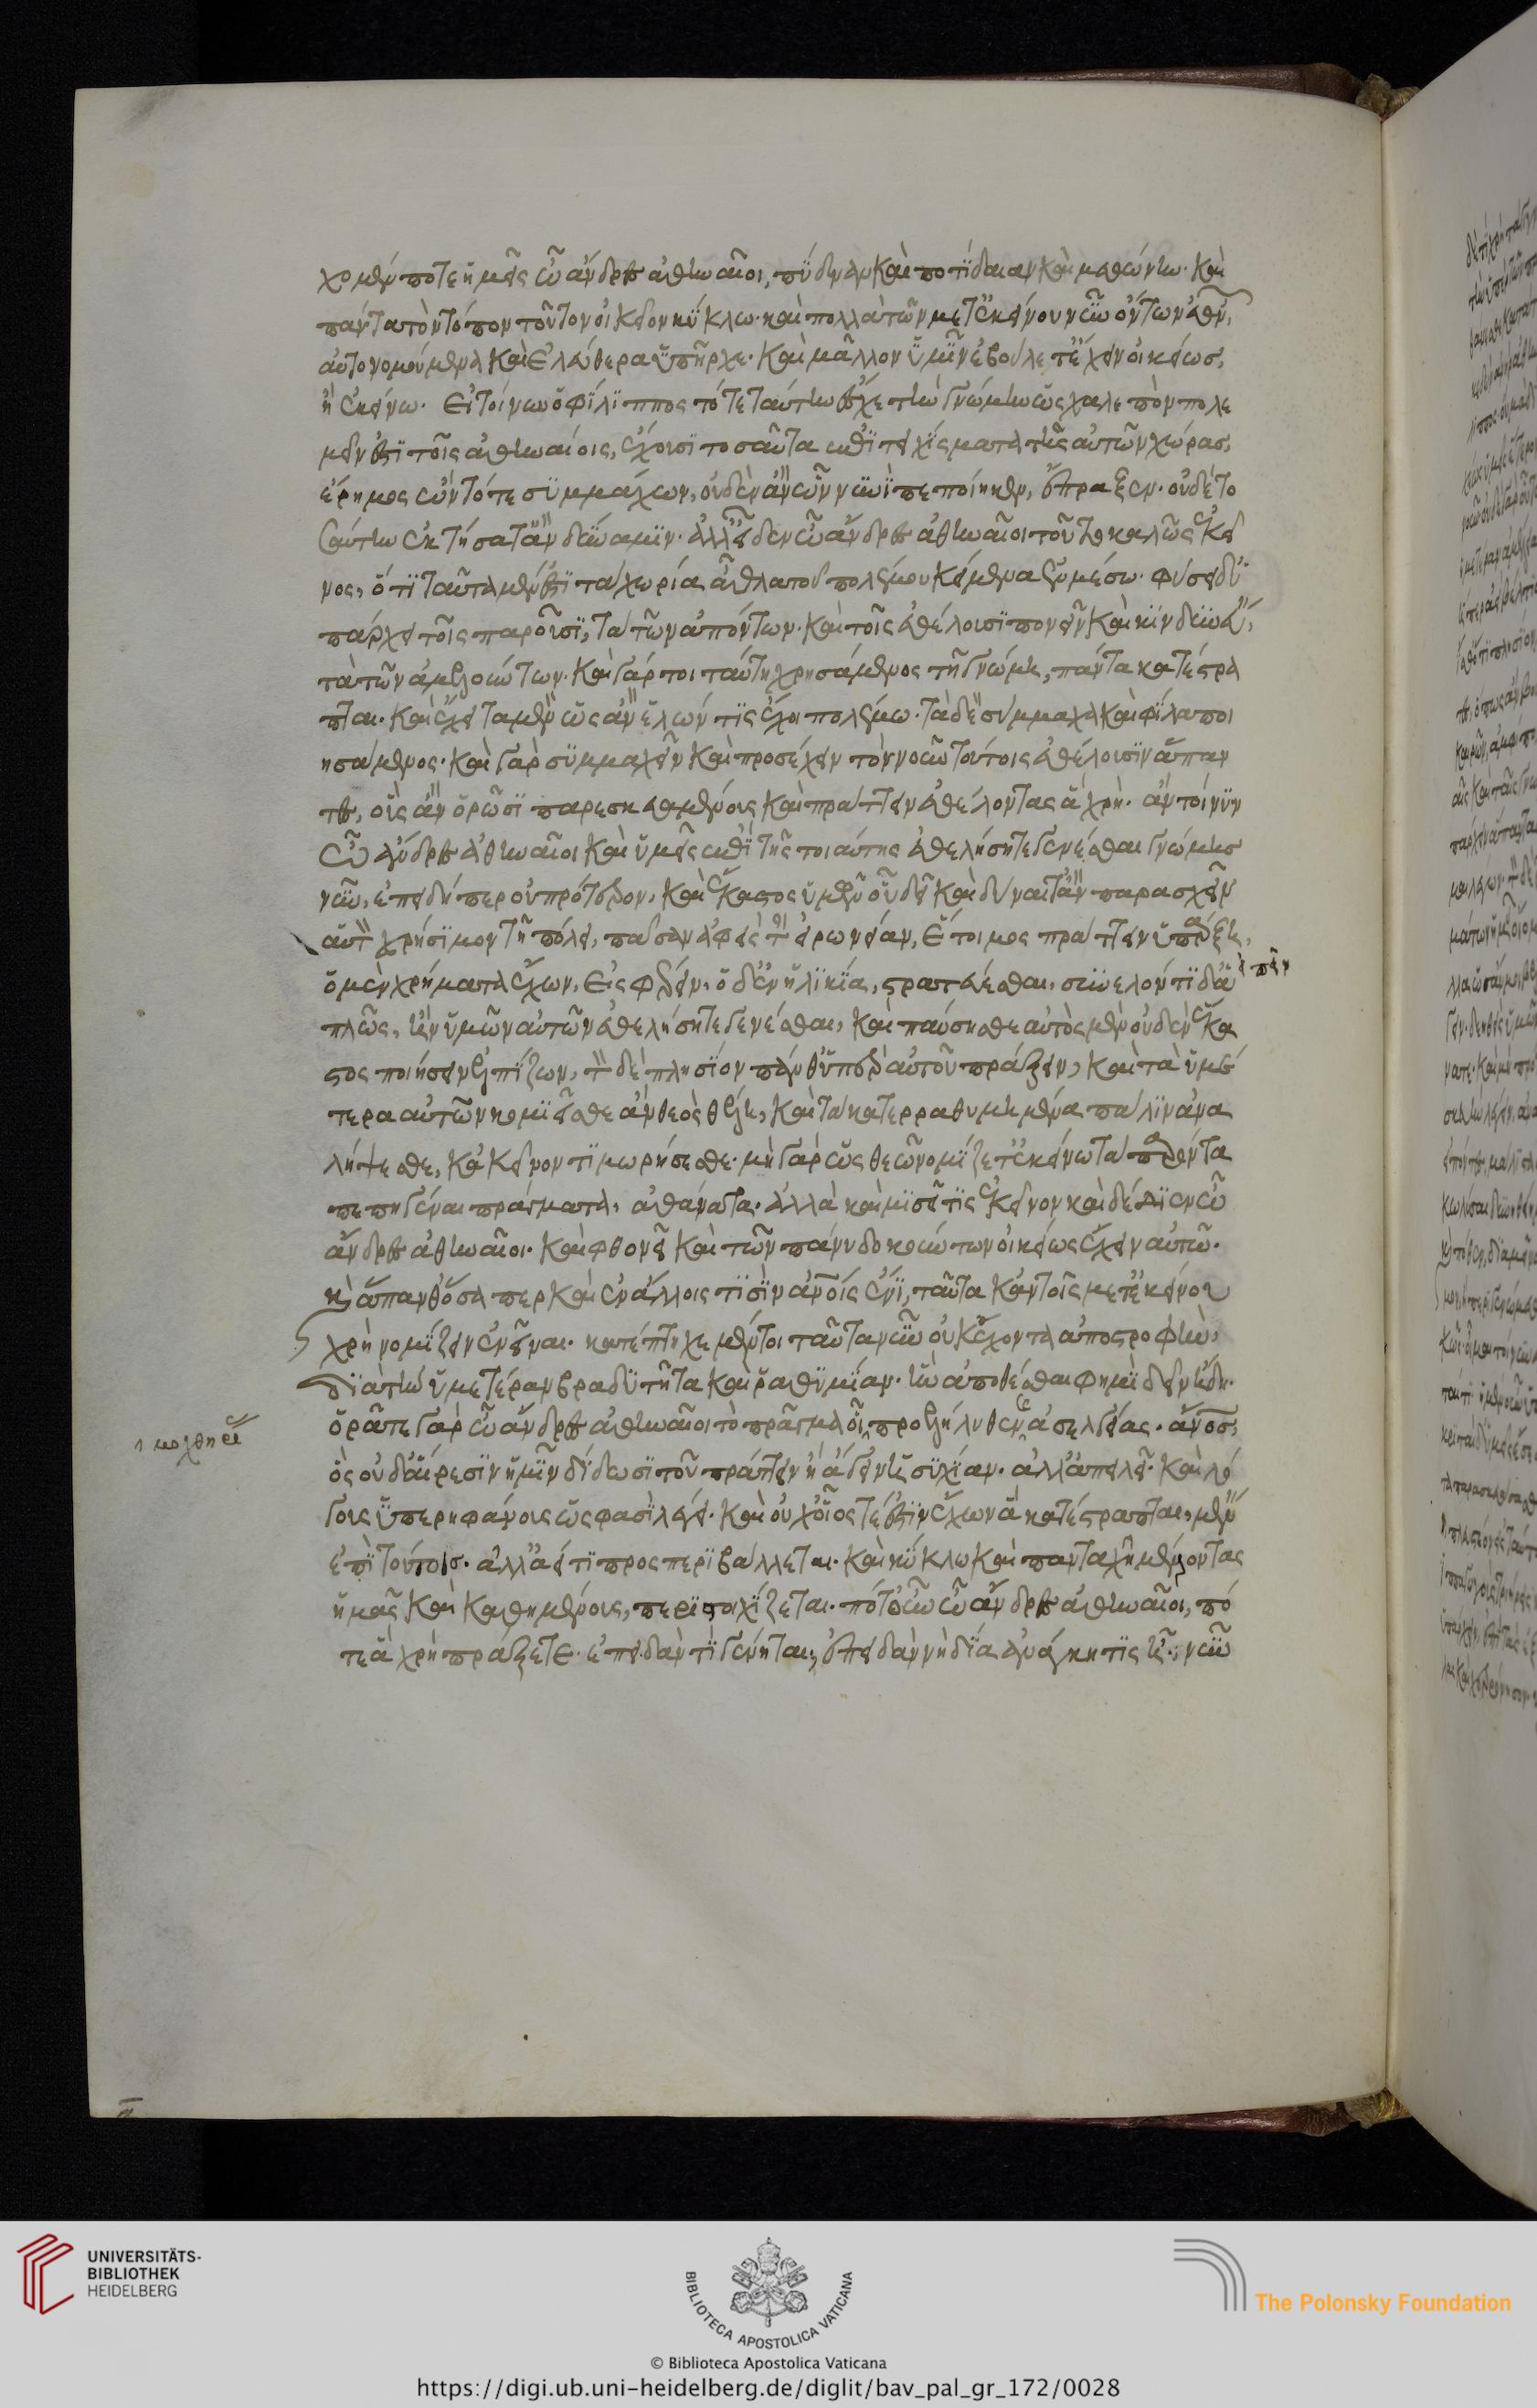 χομέν ποτε ἡμεῖς ὦ ἄνδρες ἀθηναῖοι, πύδναν καὶ ποτίδαιαν καὶ μεθώνην. καὶ
πάντα τὸν τόπον τοῦτον οἰκεῖον κύκλω. καὶ πολλὰ τῶν μετ' ἐκείνου νῦν ὄντων ἐθνῶν,
αὐτονομούμενα καὶ ἐλεύθερα ὑπῆρχε. καὶ μᾶλλον ὑμῖν ἐβούλετ' ἔχειν οἰκείως,
ἢ 'κείνω. εἰ τοίνυν ὁ φίλιππος τότε ταύτην ἔσχε τὴν γνώμην ὡς χαλεπὸν πολε
μεῖν ἐστὶ τοῖς ἀθηναίοις, ἔχουσι τοσαῦτα ἐπιτειχίσματα τῆς αὐτῶν χώρας,
ἔρημος ὢν τότε συμμάχων, οὐδὲν ἂν ὧν νυνὶ πεποίηκεν, ἔπραξεν. οὐδὲ το
σαύτην ἐκτήσατ' ἂν δύναμιν. ἀλλ' εἶδεν ὦ ἄνδρες ἀθηναῖοι τοῦτο καλῶς ἐκεῖ
νος, ὅτι ταῦτα μέν ἐστι τὰ χωρία ἆθλα τοῦ πολέμου κείμενα ἐν μέσω. φύσει δ' ὑ
πάρχει τοῖς παροῦσι, τὰ τῶν ἀπόντων. καὶ τοῖς ἐθέλουσι πονεῖν καὶ κινδυνεύειν,
τὰ τῶν ἀμελούντων. καὶ γάρ τοι ταύτη χρησάμενος τῆ γνώμη, πάντα κατέστρα
πται. καὶ ἔχει τὰ μὲν ὡς ἂν ἑλών τις ἔχοι πολέμω. τὰ δὲ σύμμαχα καὶ φίλα ποι
ησάμενος. καὶ γὰρ συμμαχεῖν καὶ προσέχειν τὸν νοῦν τούτοις ἐθέλουσιν ἅπαν
τες, οὓς ἂν ὁρῶσι παρεσκευασμένους καὶ πράττειν ἐθέλοντας ἃ χρή. ἂν τοίνυν
ὦ ἄνδρες ἀθηναῖοι καὶ ὑμεῖς ἐπὶ τῆς τοιαύτης ἐθελήσητε γενέσθαι γνώμης
νῦν, ἐπειδήπερ οὐ πρότερον, καὶ ἕκαστος ὑμῶν οὗ δεῖ καὶ δύναιτ' ἂν παρασχεῖν
αὑτὸν χρήσιμον τῆ πόλει, πᾶσαν ἀφεὶς τὴν εἰρωνείαν, ἕτοιμος πράττειν ὑπάρξη,
ὁ μὲν χρήματα ἔχων, εἰσφέρειν, ὁ δ' ἐν ἡλικία, στρατεύεσθαι, συνελόντι δ' ἁ εἰπεῖν
πλῶς, ἢν ὑμῶν αὐτῶν ἐθελήσητε γενέσθαι, καὶ παύσησθε αὐτὸς μὲν οὐδὲν ἕκα
στος ποιήσειν ἐλπίζων, τὸν δὲ πλησίον πάνθ' ὑπὲρ αὐτοῦ πράξειν, καὶ τὰ ὑμέ
τερα αὐτῶν κομιεῖσθε ἂν θεὸς θέλη, καὶ τὰ κατερραθυμημένα πάλιν ἀνα
λήψεσθε, κἀκεῖνον τιμωρήσεσθε. μὴ γὰρ ὡς θεῶ νομίζετ' ἐκείνω τὰ παρόντα
πεπηγέναι πράγματα, ἀθάνατα. ἀλλὰ καὶ μισεῖ τις ἐκεῖνον καὶ δέδιεν ὦ
ἄνδρες ἀθηναῖοι. καὶ φθονεῖ καὶ τῶν πάνυ δοκούντων οἰκείως ἔχειν αὐτῶ.
καὶ ἅπανθ' ὅσα περ καὶ ἐν ἄλλοις τισὶν ἀνοις ἔνι, ταῦτα κἀν τοῖς μετ' ἐκείνου
χρὴ νομίζειν ἐνεῖναι. κατέπτηχε μέντοι ταῦτα νῦν οὐκ ἔχοντα ἀποστροφὴν,
διὰ τὴν ὑμετέραν βραδυτῆτα καὶ ῥαθυμίαν. ἣν ἀποθέσθαι φημὶ δεῖν ἤδη.
ὁρᾶτε γὰρ ὦ ἄνδρες ἀθηναῖοι τὸ πρᾶγμα οἷ προελήλυθεν ἀσελγείας. ἄνος,
ὃς οὐδ' αἵρεσιν ἡμῖν δίδωσι τοῦ πράττειν ἢ ἄγειν ἡσυχίαν. ἀλλ' ἀπειλεῖ. καὶ λό
γους ὑπερηφάνους ὥς φασὶ λέγει. καὶ οὐχ οἷός τέ ἐστιν ἔχων ἃ κατέστραπται, μένειν
ἐπὶ τούτοις. ἀλλ' ἀεί τι προσπεριβάλλεται. καὶ κύκλω καὶ πανταχῆ μέλλοντας
ἡμᾶς καὶ καθημένους, περιστοιχίζεται. πότ' οὖν ὦ ἄνδρες ἀθηναῖοι, πό
τε ἃ χρὴ πράξετε. ἐπειδὰν τί γένηται, ἐπειδὰν νὴ δία ἀνάγκη τις ἦ, νῦν
UNIVERSITÄTS-
BIBLIOTHEK
HEIDELBERG
BIBLIOTECA APOSTOLICA VATICANA
The Polonsky Foundation
© Biblioteca Apostolica Vaticana
https://digi.ub.uni-heidelberg.de/diglit/bav_pal_gr_172/0028